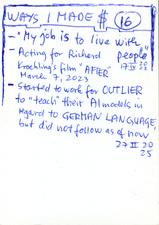 WAYS I MADE $ 16
- "My job is to live with
people" 17 IV 20
22
- Acting for Richard
Kroehling's film "AFTER"
March 7, 2023
- Started to work for OUTLIER
to "teach" their AI models in
regard to GERMAN LANGUAGE,
but did not follow as of now
27 II 20
25